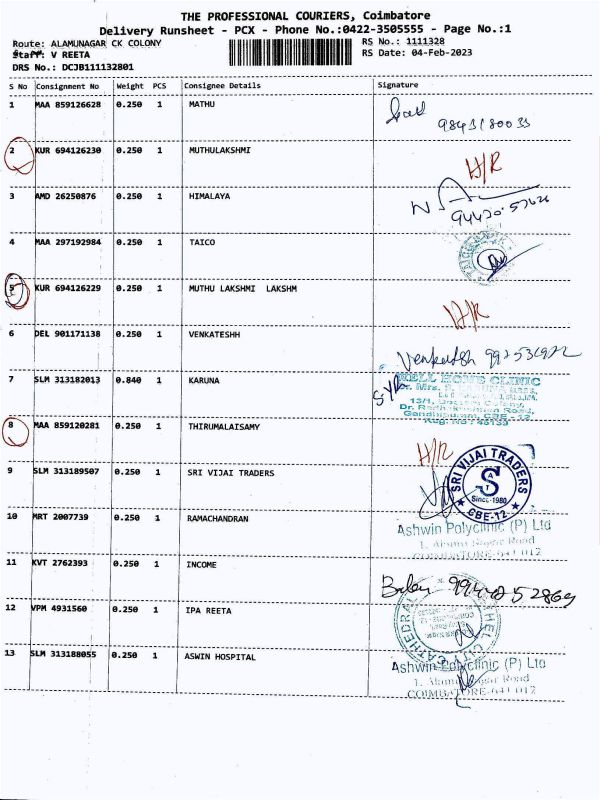 THE PROFESSIONAL COURIERS, Coimbatore
Delivery Runsheet - PCX - Phone No.:0422-3505555 - Page No.:1
Route: ALAMUNAGAR CK COLONY RS No.: 1111328
Staff: V REETA RS Date: 04-Feb-2023
DRS No.: DCJB111132801
S No Consignment No Weight PCS Consignee Details Signature
1 MAA 859126628 0.250 1 MATHU
9843180033
2 KUR 694126230 0.250 1 MUTHULAKSHMI
H/R
3 AMD 26250876 0.250 1 HIMALAYA
4 MAA 297192984 0.250 1 TAICO
5 KUR 694126229 0.250 1 MUTHU LAKSHMI LAKSHM
H/R
6 DEL 901171138 0.250 1 VENKATESHH
Venkatesh
7 SLM 313182013 0.840 1 KARUNA
WELL HOME CLINIC
8 MAA 859120281 0.250 1 THIRUMALAISAMY
H/R
9 SLM 313189507 0.250 1 SRI VIJAI TRADERS
SRI VIJAI TRADERS
Since-1980
CBE-12
10 MRT 2007739 0.250 1 RAMACHANDRAN
Ashwin Polyclinic (P) Ltd
COIMBATORE-641 012
11 KVT 2762393 0.250 1 INCOME
12 VPM 4931560 0.250 1 IPA REETA
13 SLM 313188055 0.250 1 ASWIN HOSPITAL
Ashwin Polyclinic (P) Ltd
COIMBATORE-641 012